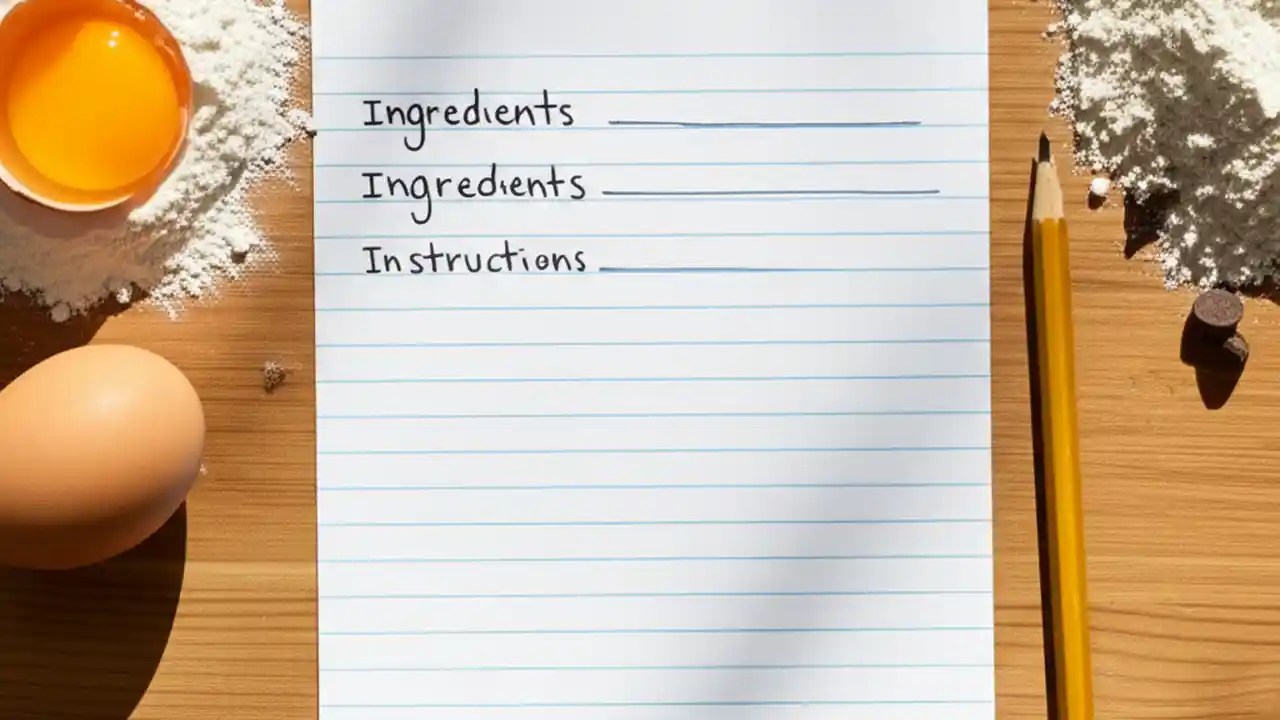 Ingredients
Ingredients
Instructions